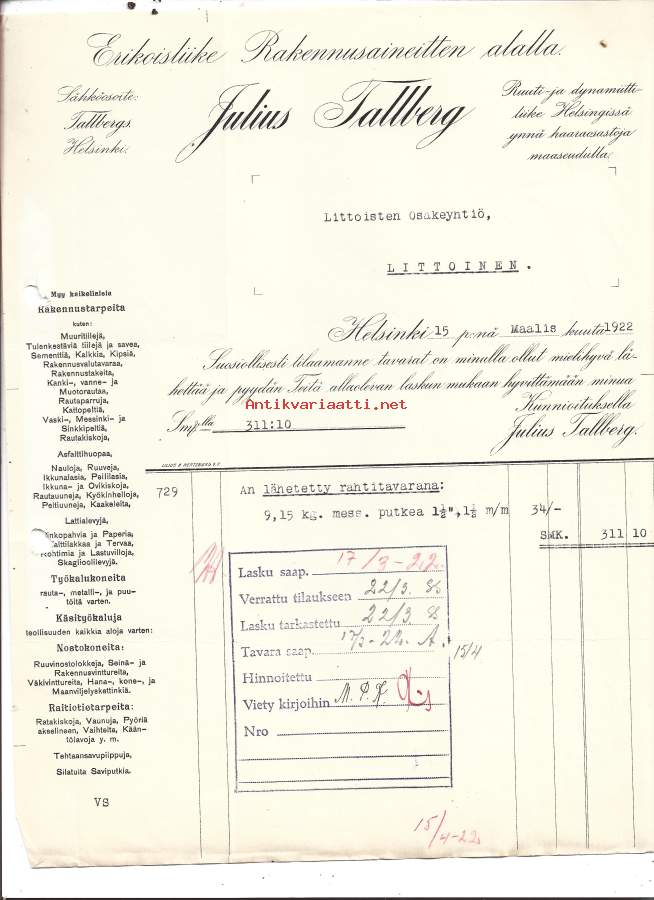 Erikoisliike Rakennusaineitten alalla.
Sähköosoite:
Tallbergs.
Helsinki.
Julius Tallberg
Ruuti- ja dynamiitti-
liike Helsingissä
ynnä haaraosastoja
maaseudulla.
Littoisten Osakeyntiö,
LITTOINEN.
Helsinki 15 p:nä Maalis kuuta 1922
Suosiollisesti tilaamanne tavarat on minulla ollut mielihyvä lä-
hettää ja pyydän Teitä allaolevan laskun mukaan hyvittämään minua
Antikvariaatti.net
Smk:lla 311:10
Kunnioituksella
Julius Tallberg.
Myy kaikellaisia
Rakennustarpeita
kuten:
Muuritiilejä,
Tulenkestäviä tiilejä ja savea,
Sementtiä, Kalkkia, Kipsiä,
Rakennusvalutavaraa,
Rakennustakeita,
Kanki-, vanne- ja
Muotorautaa,
Rautaparruja,
Kattopeltiä,
Vaski-, Messinki- ja
Sinkkipeltiä,
Ratakiskoja,
Asfalttihuopaa,
Nauloja, Ruuveja,
Ikkunalasia, Peililasia,
Ikkuna- ja Ovikiskoja,
Rautauuneja, Kyökinhelloja,
Peltiuuneja, Kaakeleita,
Lattialevyjä,
inkopahvia ja Paperia,
alttilakkaa ja Tervaa,
ohtimia ja Lastuvilloja,
Skaglioolilevyjä.
Työkalukoneita
rauta-, metalli-, ja puu-
töitä varten.
Käsityökaluja
teollisuuden kaikkia aloja varten:
Nostokoneita:
Ruuvinostolokkeja, Seinä- ja
Rakennusvinttureita,
Väkivinttureita, Hana-, kone-, ja
Maanviljelyskettinkiä.
Raitiotietarpeita:
Ratakiskoja, Vaunuja, Pyöriä
akselineen, Vaihteita, Kään-
tölavoja y. m.
Tehtaansavupiippuja,
Silatuita Saviputkia.
VS
LILIUS & HERTZBERG O.Y.
729 An lähetetty rahtitavarana:
9,15 kg. mess. putkea 1½",1½ m/m 34/-
SMK. 311 10
Lasku saap. 17/3-22.
Verrattu tilaukseen 22/3.
Lasku tarkastettu 22/3
Tavara saap. 17/3-22. A. 15/4
Hinnoitettu
Viety kirjoihin M. P. K.
Nro
15/4-22